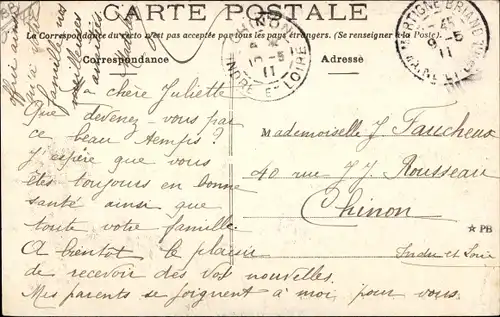 CARTE POSTALE
La Correspondance du recto n'est pas acceptée par tous les pays étrangers. (Se renseigner à la Poste).
Correspondance
Adresse
chère Juliette
Que devenez-vous par
ce beau temps ?
J'espère que vous
êtes toujours en bonne
santé ainsi que
toute votre famille.
A bientôt le plaisir
de recevoir des vos nouvelles.
Mes parents se joignent à moi pour vous
offrir
famille nos
meilleures
amitiés
Mademoiselle J. Faucheux
40 rue J. J. Rousseau
Chinon
Indre et Loire
★ PB
CHINON
5
11
INDRE-ET-LOIRE
MARTIGNÉ-BRIAND
45
9-5
11
MAINE-ET-LOIRE